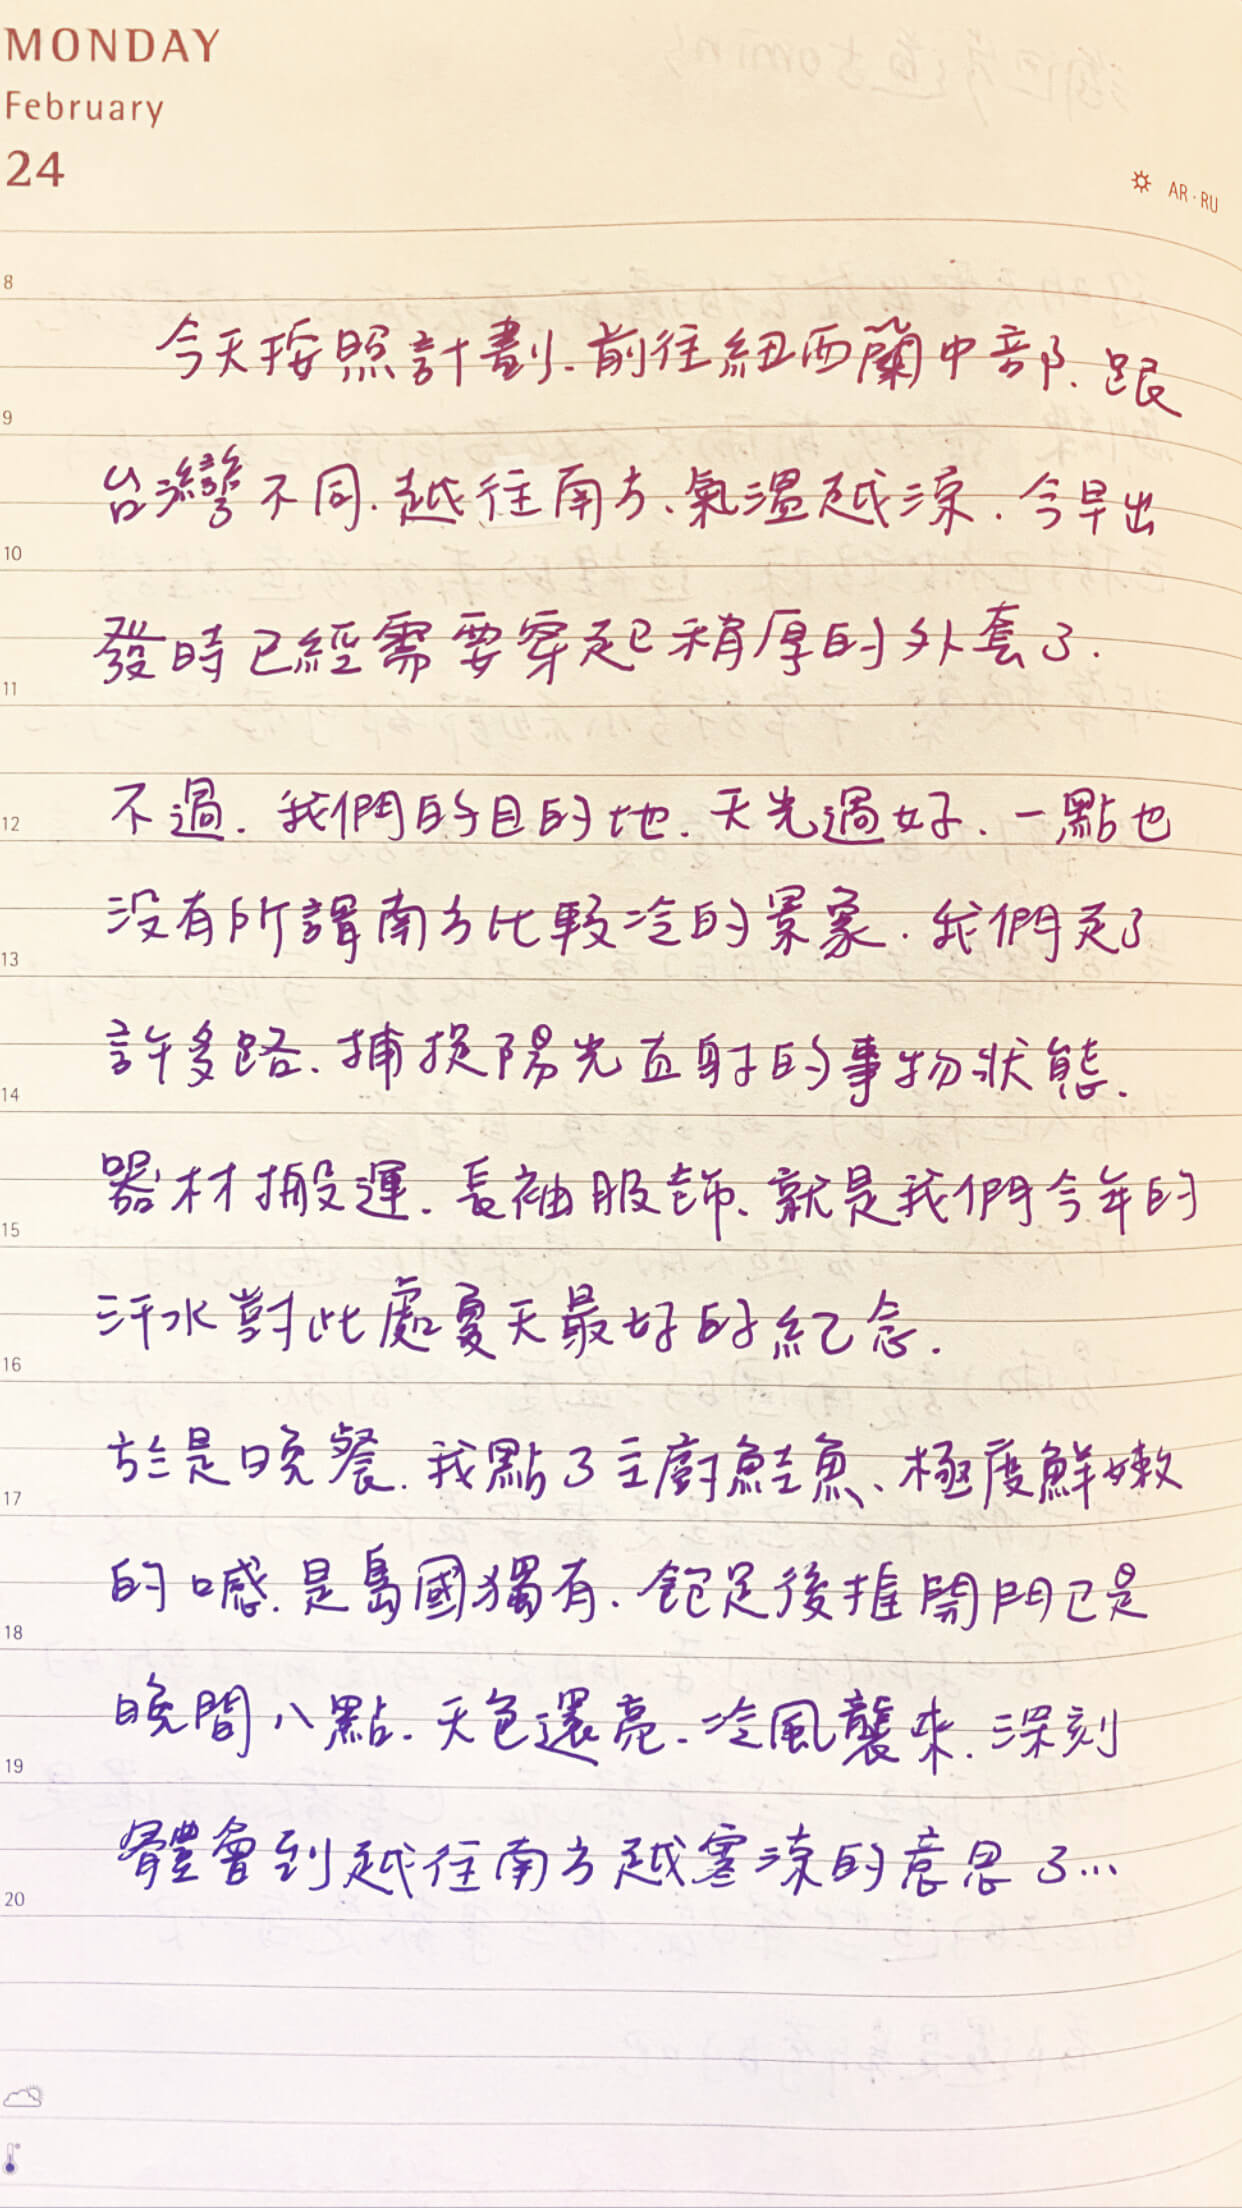 MONDAY
February
24
AR · RU
8
今天按照計劃、前往紐西蘭中部、跟
9
台灣不同、越往南方、氣溫越涼．今早出
10
發時已經需要穿起稍厚的外套了．
11
不過．我們的目的地．天光過好、一點也
12
沒有所謂南方比較冷的景象．我們走了
13
許多路、捕捉陽光直射的事物狀態．
14
器材搬運．長袖服飾、就是我們今年的
15
汗水對此處夏天最好的紀念．
16
於是晚餐．我點了主廚鮭魚、極度鮮嫩
17
的喊．是島國獨有．飽足後推開門已是
18
晚間八點．天色還亮．冷風襲來．深刻
19
體會到越往南方越寒涼的意思了…
20